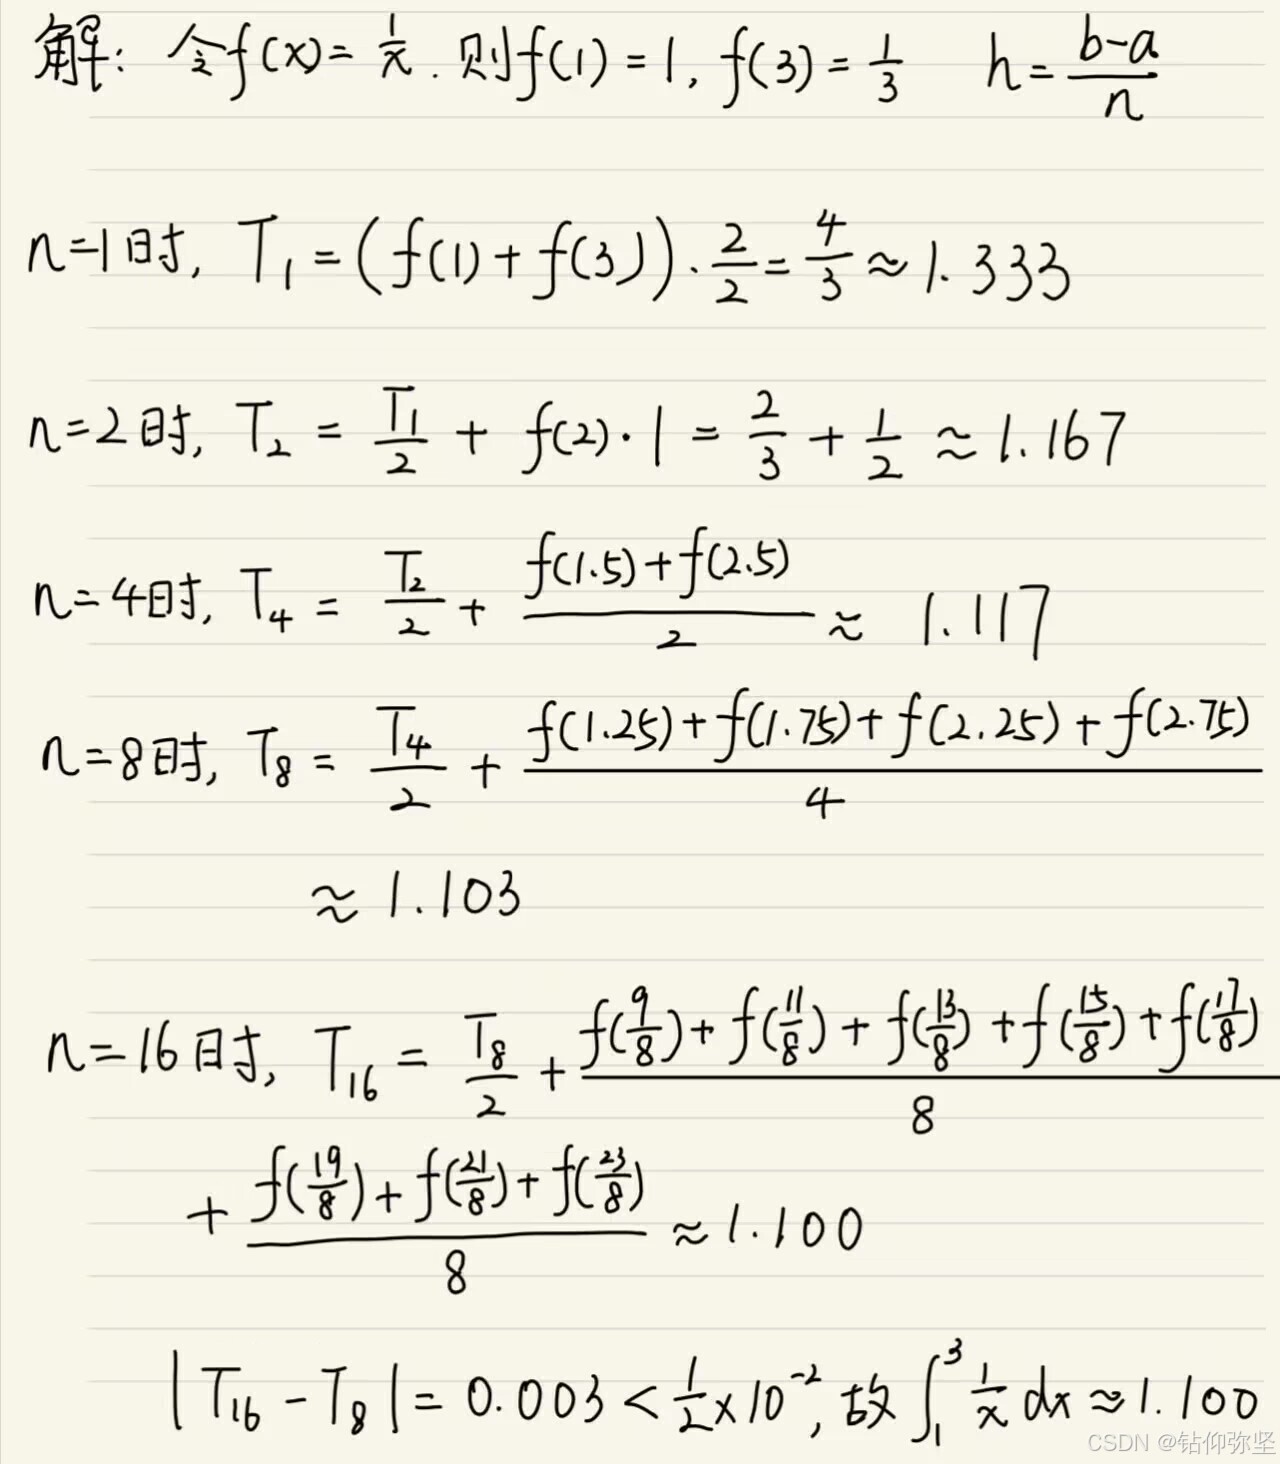 解: 令f(x)=1/x. 则f(1)=1, f(3)=1/3 h=(b-a)/n
n=1时, T₁=(f(1)+f(3))·2/2=4/3≈1.333
n=2时, T₂=T₁/2+f(2)·1=2/3+1/2≈1.167
n=4时, T₄=T₂/2+(f(1.5)+f(2.5))/2≈1.117
n=8时, T₈=T₄/2+(f(1.25)+f(1.75)+f(2.25)+f(2.75))/4
≈1.103
n=16时, T₁₆=T₈/2+(f(9/8)+f(11/8)+f(13/8)+f(15/8)+f(17/8))/8
+(f(19/8)+f(21/8)+f(23/8))/8≈1.100
|T₁₆-T₈|=0.003<1/2×10⁻², 故∫₁³ 1/x dx≈1.100
CSDN @钻仰弥坚